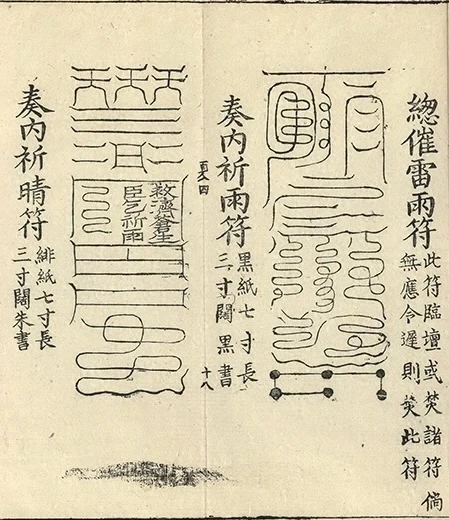 總催雷雨符
此符臨壇或焚諸符倘
無應令遲則焚此符
奏內祈雨符
黑紙七寸長
三寸闊黑書
十八
救濟蒼生
臣乞祈雨
奏內祈晴符
緋紙七寸長
三寸闊朱書